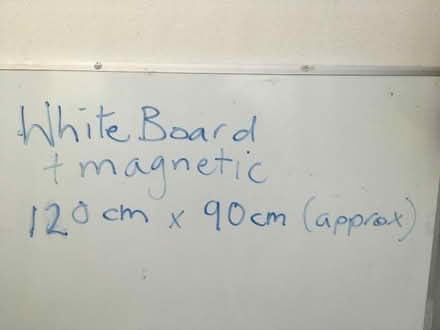 White Board
+ magnetic
120cm x 90cm (approx)